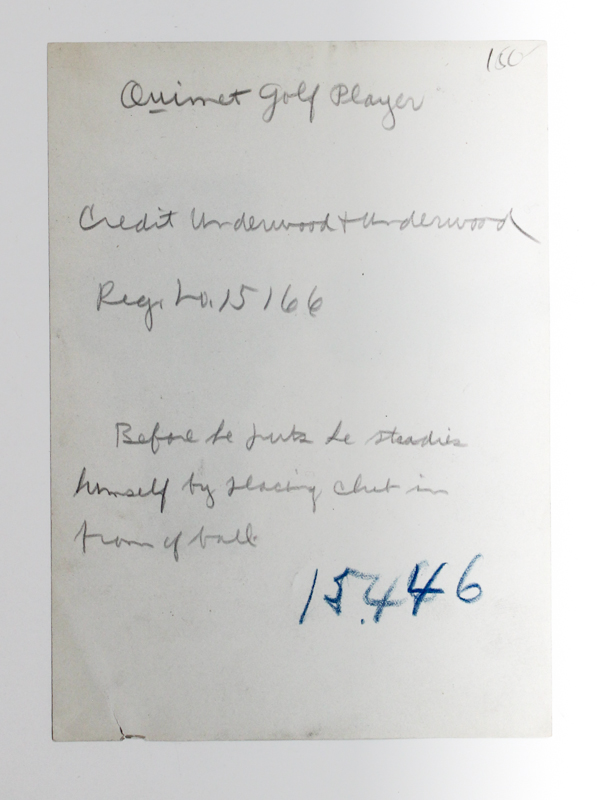 150
Ouimet Golf Player
Credit Underwood & Underwood
Reg. No. 15166
Before he puts he steadies
himself by placing club in
front of ball
15446